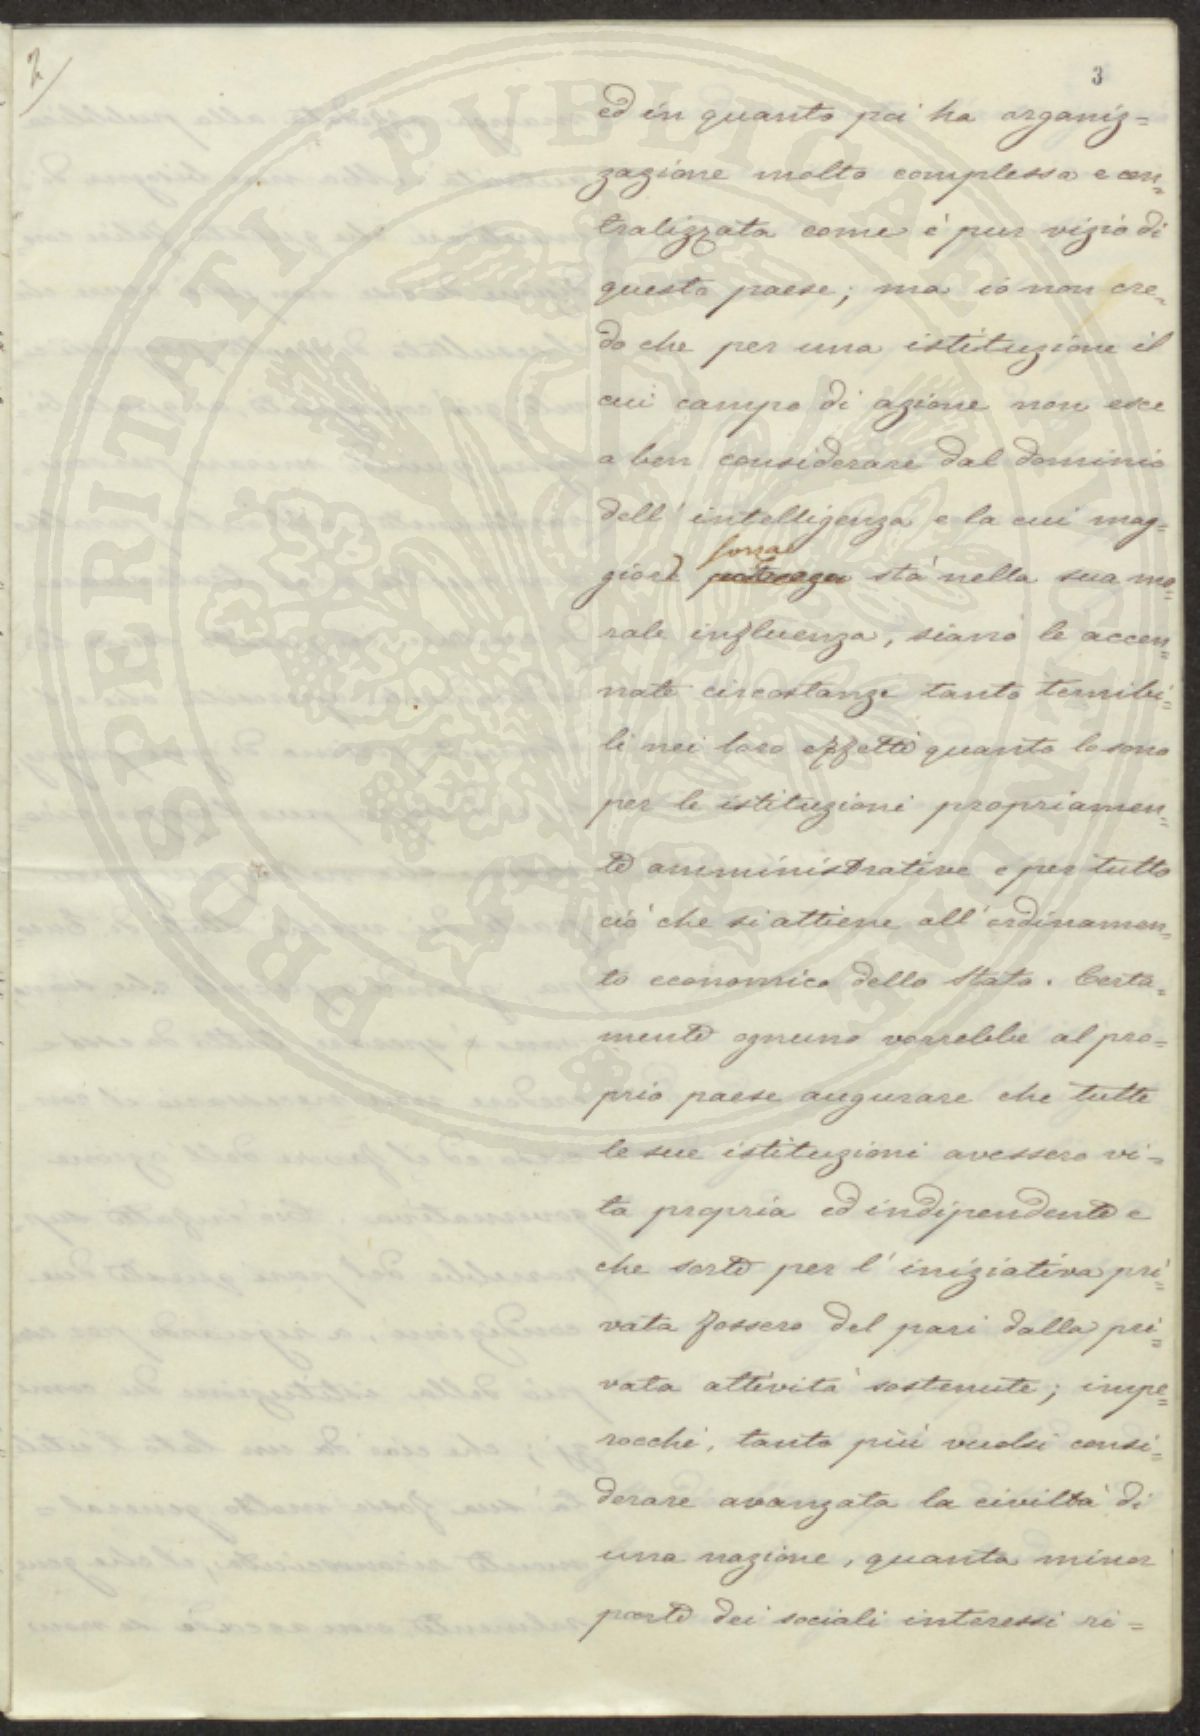 2/
3
ed in quanto poi ha organiz=
zazione molto complessa e cen=
tralizzata come è pur vizio di
questo paese; ma io non cre=
do che per una istituzione il
cui campo di azione non esce
a ben considerare dal dominio
dell'intelligenza e la cui mag=
forza
giore potenza stà nella sua mo=
rale influenza, siano le accen=
nate circostanze tanto terribi=
li nei loro effetti quanto lo sono
per le istituzioni propriamen=
te amministrative e per tutto
ciò che si attiene all'ordinamen=
to economico dello Stato. Certa=
mente ognuno vorrebbe al pro=
prio paese augurare che tutte
le sue istituzioni avessero vi=
ta propria ed indipendente e
che sorte per l'iniziativa pri=
vata fossero del pari dalla pri=
vata attività sostenute; impe=
rocchè, tanto più vuolsi consi=
derare avanzata la civiltà di
una nazione, quanta minor
parte dei sociali interessi ri=
PROSPERITATI PVBLICAE